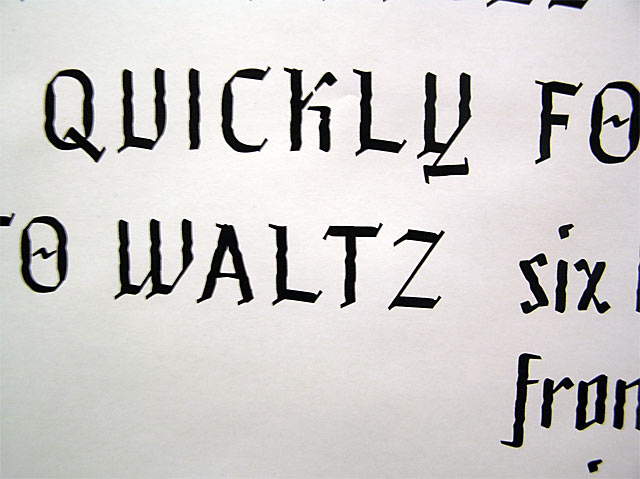 QUICKLY FO
TO WALTZ
six
from